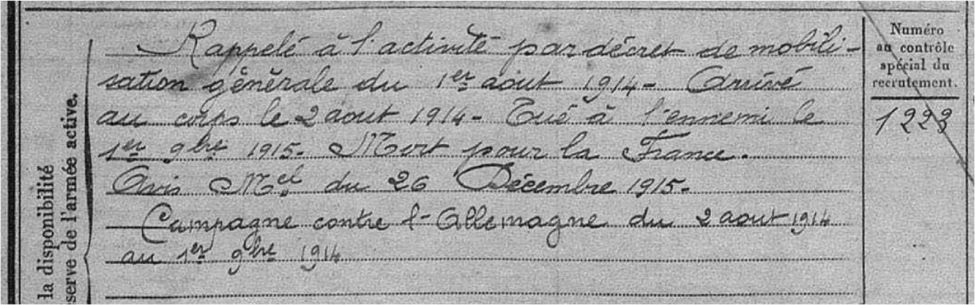 Rappelé à l'activité par décret de mobili-
sation générale du 1er aout 1914 - Arrivé
au corps le 2 aout 1914 - Tué à l'ennemi le
1er 9bre 1915 - Mort pour la France.
Avis Mel du 26 Décembre 1915 -
Campagne contre l'Allemagne du 2 aout 1914
au 1er 9bre 1914
Numéro
au contrôle
spécial du
recrutement.
1223
la disponibilité
serve de l'armée active.